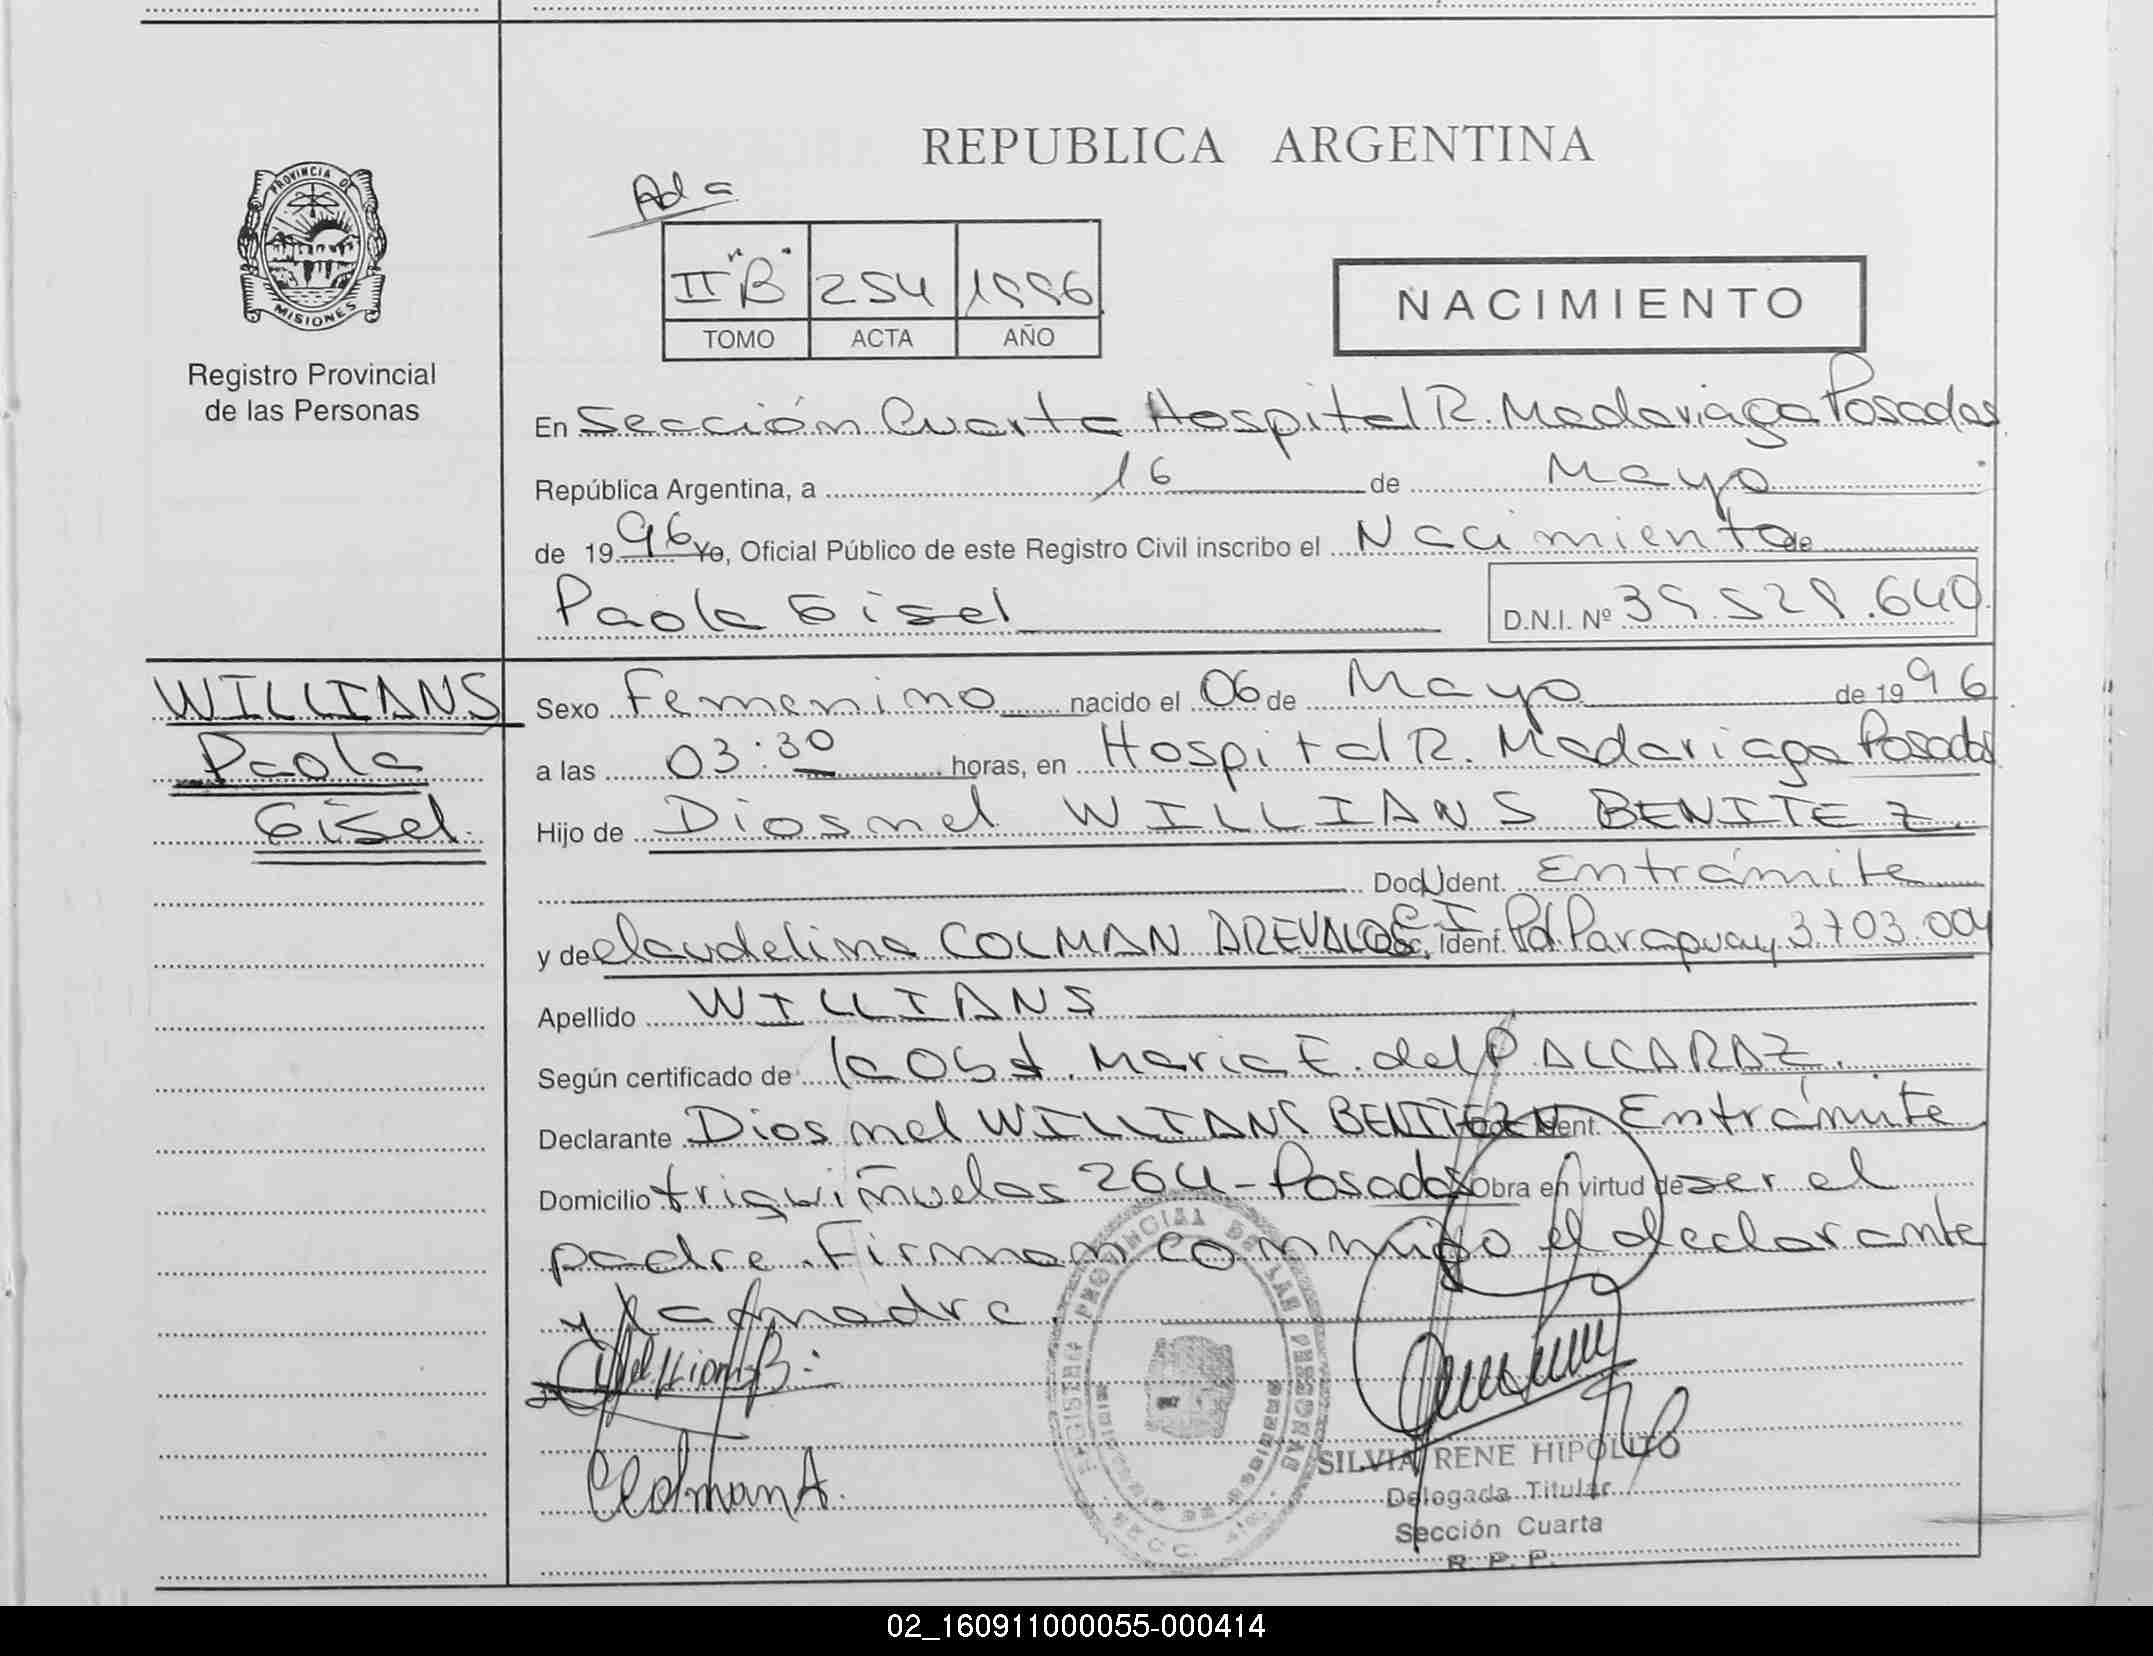 REPUBLICA ARGENTINA
PROVINCIA DE
MISIONES
Registro Provincial
de las Personas
II "B" 254 1996
TOMO ACTA AÑO
NACIMIENTO
En Sección Cuarta Hospital R. Madariaga Posadas
República Argentina, a 16 de Mayo
de 1996 Yo, Oficial Público de este Registro Civil inscribo el Nacimiento de
Paola Gisel
D.N.I. Nº 39.529.640
WILLIANS
Paola
Gisel
Sexo Femenino nacido el 06 de Mayo de 1996
a las 03:30 horas, en Hospital R. Madariaga Posadas
Hijo de Diosnel WILLIANS BENITEZ.
Doc. Ident. Entrámite
y de Claudelina COLMAN AREVALO C.I. Doc. Ident. Pol. Paraguay 3703.004
Apellido WILLIANS
Según certificado de la Obst. Maria E. del P. ALCARAZ.
Declarante Diosnel WILLIANS BENITEZ Doc. Ident. Entrámite
Domicilio triquiñuelas 264 - Posadas Obra en virtud de ser el
padre. Firman conmigo el declarante
y la madre.
REGISTRO PROVINCIAL DE LAS PERSONAS
MISIONES
Colman A.
SILVIA RENE HIPOLITO
Delegada Titular
Sección Cuarta
R. P. P.
02_160911000055-000414